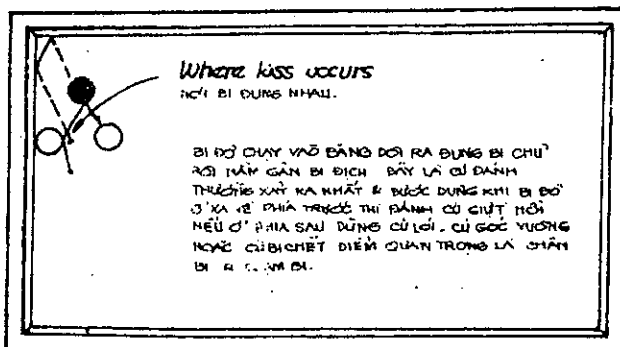 Where kiss occurs
NƠI BI ĐỤNG NHAU.
BI ĐỎ CHẠY VAÕ BĂNG DỘI RA ĐỤNG BI CHỦ
RỒI NẰM GẦN BI ĐỊCH ĐÂY LÀ CÚ ĐÁNH
THƯỜNG XẢY RA NHẤT & ĐƯỢC DÙNG KHI BI ĐỎ
Ở XA VỀ PHÍA TRƯỚC THÌ ĐÁNH CÚ GIỰT
NẾU Ở PHIA SAU DÙNG CÚ LÒI. CÚ GÓC VUÔNG
HOẶC CÚ BI CHẾT ĐIỂM QUAN TRỌNG LÀ CHÂN
BI